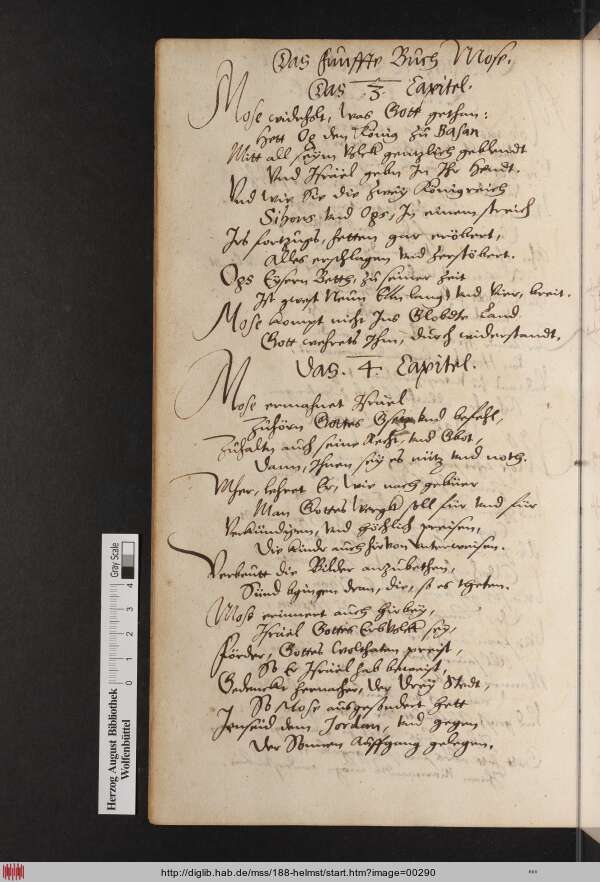 Das Fünffte Buch Mose.
Das .3. Capitel.
Mose widerholt, was Gott gethan:
Hett Og den König zu Basan
Mitt all seim Volck gentzlich geblendt
Vnd Israel geben In Ihr Hendt.
Vnd wie Sie die zwey Königreich
Sihons vnd Ogs, In einem streich
Irs fortzugs, hetten gar eröbert,
Alles erschlagen vnd zerstöbert.
Ogs Eysern Betth, zu seiner Zeit
Ist gwest Neun Eln lang, vnd Vier, breit.
Mose kompt nicht Ins Globdte Land
Gott wehrets Ihm, durch widerstandt.
Das .4. Capitel.
Mose ermahnet Israel
Zuhörn Gottes Gsetz vnd befehl,
Zuhalten auch seine Recht, vnd Gbot,
Dann, Ihnen sey es nütz vnd noth.
Vher, lehret Er, wie nach gebüer
Man Gottes Werck soll für vnd für
Verkündigen, vnd höchlich preisen,
Die Kinder auch hirvon vnterweisen.
Verbeutt die Bilder anzubethen,
Sünd begingen dran, die, so es theten.
Mose erinnert auch hirbey,
Israel Gottes Erbvolck sey,
Förder, Gottes wolthaten preist,
So Er Israel hab beweist,
Gedencke hernacher, der Drey Stedt,
So Mose ausgesondert hett
Jenseid dem Jordan, vnd gegen
Der Sonnen Auffgang gelegen.
Herzog August Bibliothek
Wolfenbüttel
Gray Scale
0 1 2 3 4
http://diglib.hab.de/mss/188-helmst/start.htm?image=00290